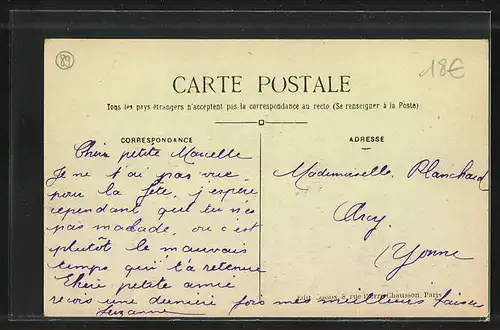 89
18€
CARTE POSTALE
Tous les pays étrangers n'acceptent pas la correspondance au recto (Se renseigner à la Poste)
CORRESPONDANCE
ADRESSE
Chère petite Marcelle
Je ne t'ai pas vue
pour la fête, j'espère
cependant que tu n'es
pas malade, ou c'est
plutôt le mauvais
temps qui t'a retenue
Chère petite amie
reçois une dernière fois mes meilleurs baisers
Suzanne
Mademoiselle Planchard
Arcy
Yonne
8, rue Pierre-Chausson, Paris